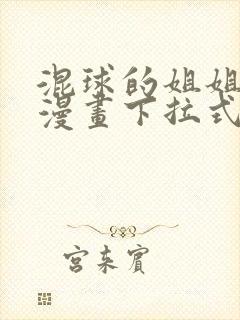 混球的姐姐
漫畫下拉式
宮本賓